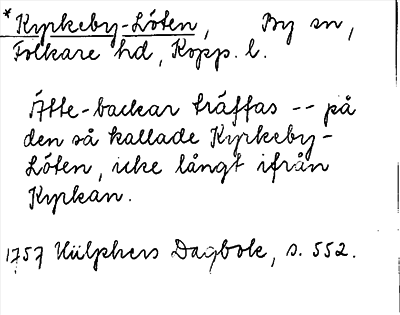 *Kyrkeby-Löten, By sn,
Folkare hd, Kopp. l.
Ätte-backar träffas -- på
den så kallade Kyrkeby-
Löten, icke långt ifrån
Kyrkan.
1757 Hülphers Dagbok, s. 552.